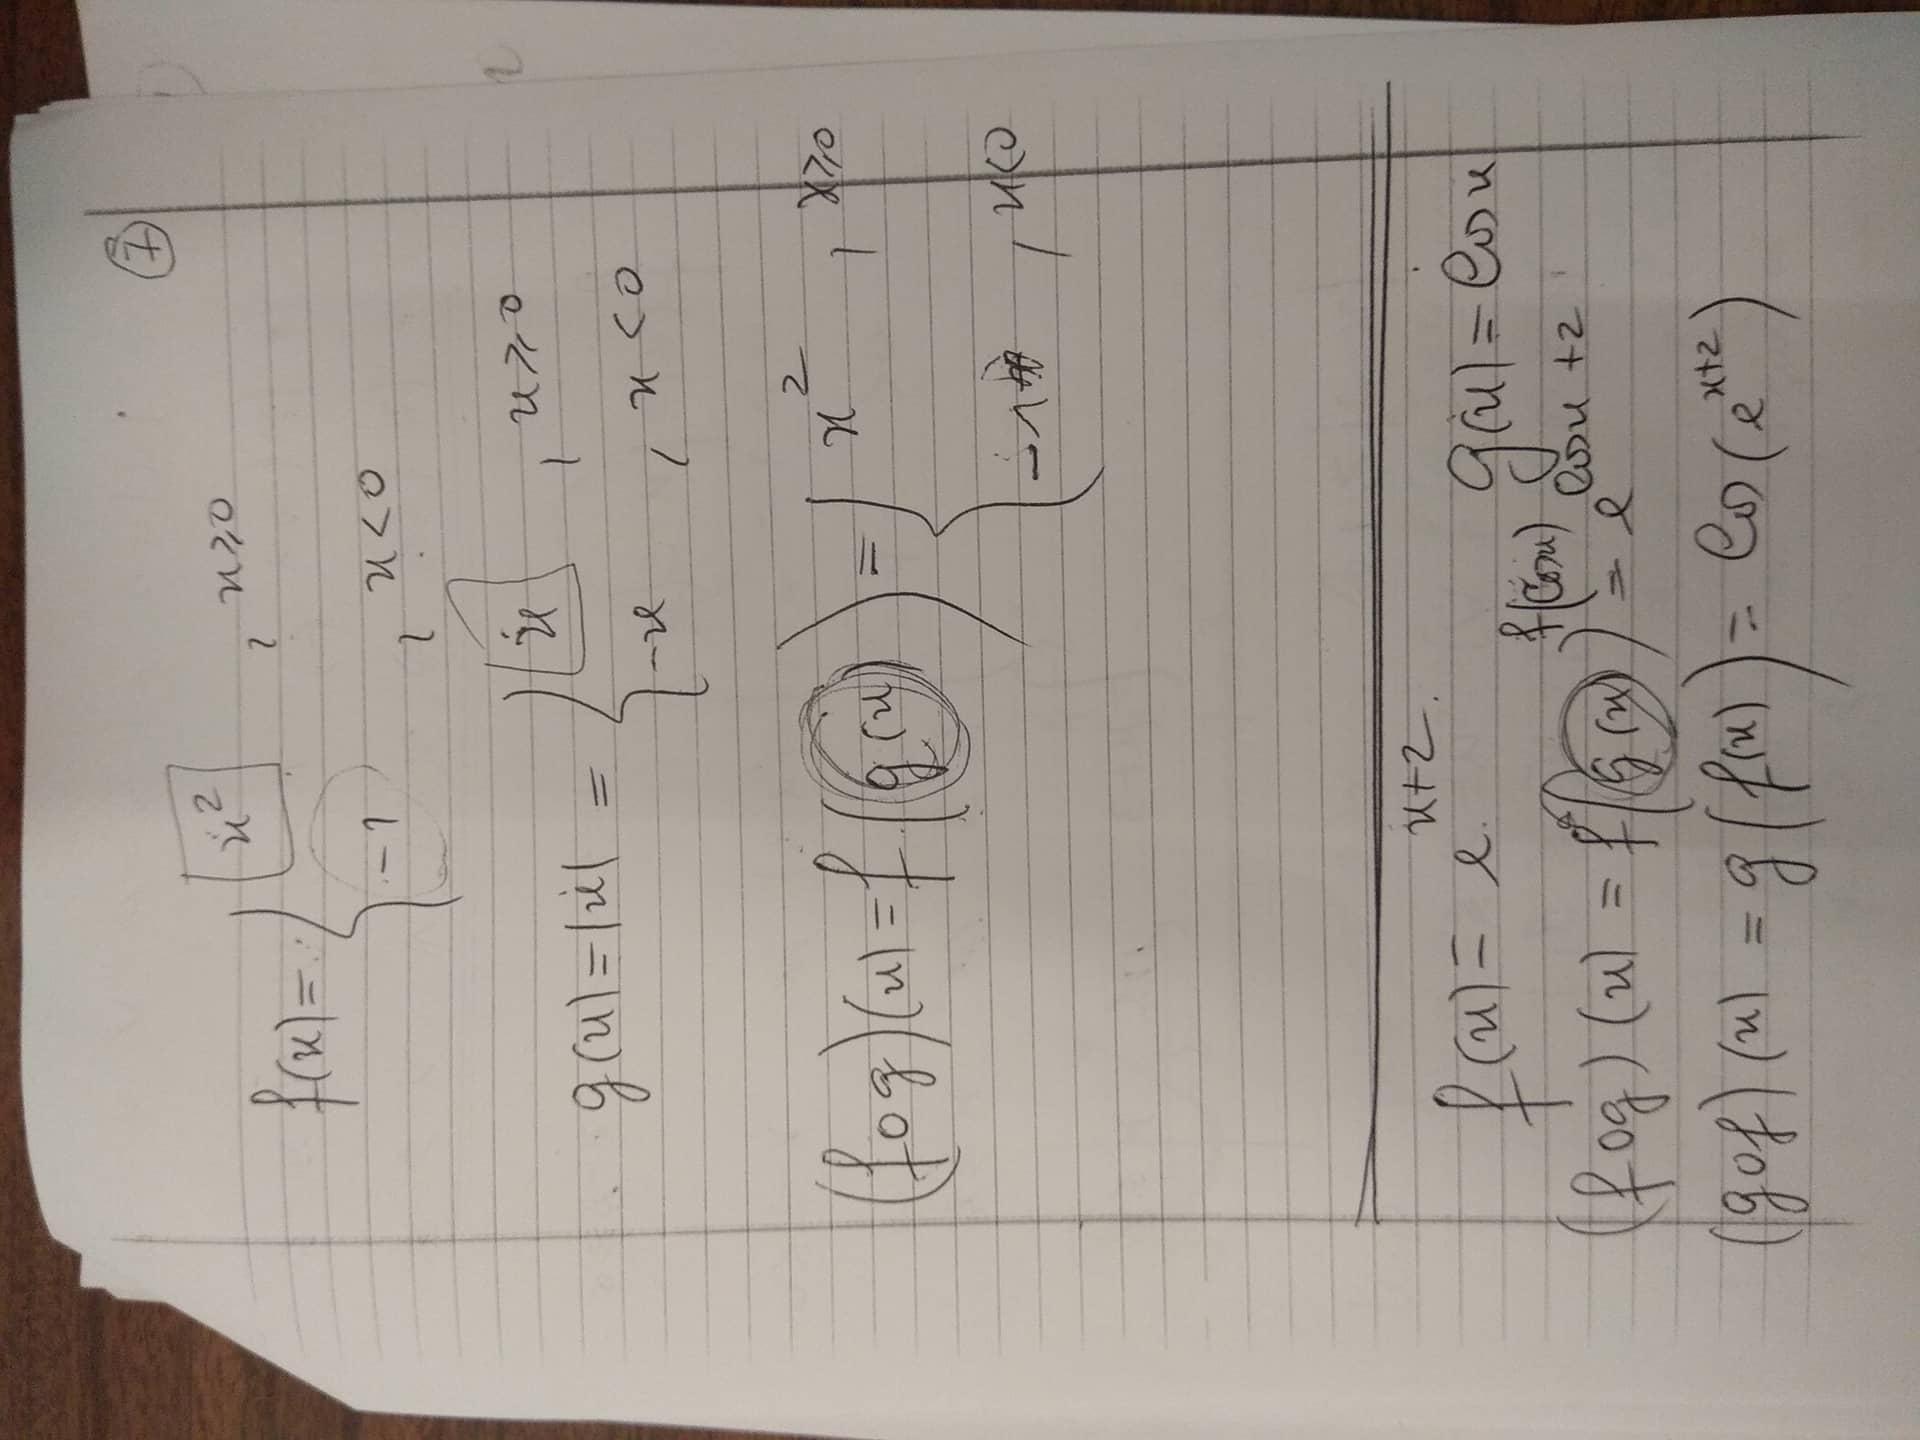 7
f(x) = { x² , x ≥ 0
-1 , x < 0
g(x) = |x| = { x , x ≥ 0
-x , x < 0
(fog)(x) = f(g(x)) = { x² , x ≥ 0
-1 , x < 0
f(x) = e^{x+2} g(x) = Cos x
f(Cos x)
(fog)(x) = f(g(x)) = e^{Cos x + 2}
(gof)(x) = g(f(x)) = Cos(e^{x+2})